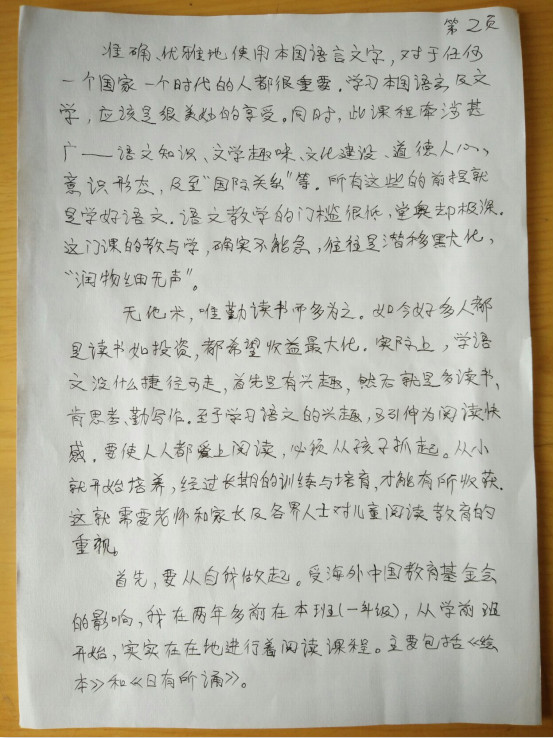 第2页
准确、优雅地使用本国语言文字，对于任何
一个国家一个时代的人都很重要。学习本国语言及文
学，应该是很美妙的享受。同时，此课程牵涉甚
广——语文知识、文学趣味、文化建设、道德人心、
意识形态，及至“国际关系”等。所有这些的前提就
是学好语文。语文教学的门槛很低，堂奥却极深。
这门课的教与学，确实不能急，往往是潜移默化，
“润物细无声”。
无他术，唯勤读书而多为之。如今好多人都
是读书如投资，都希望收益最大化。实际上，学语
文没什么捷径可走，首先是有兴趣，然后就是多读书、
肯思考、勤写作。至于学习语文的兴趣，可引伸为阅读快
感。要使人人都爱上阅读，必须从孩子抓起。从小
就开始培养，经过长期的训练与培育，才能有所收获。
这就需要老师和家长及各界人士对儿童阅读教育的
重视。
首先，要从自我做起。受海外中国教育基金会
的影响，我在两年多前在本班(一年级)，从学前班
开始，实实在在地进行着阅读课程。主要包括《绘
本》和《日有所诵》。